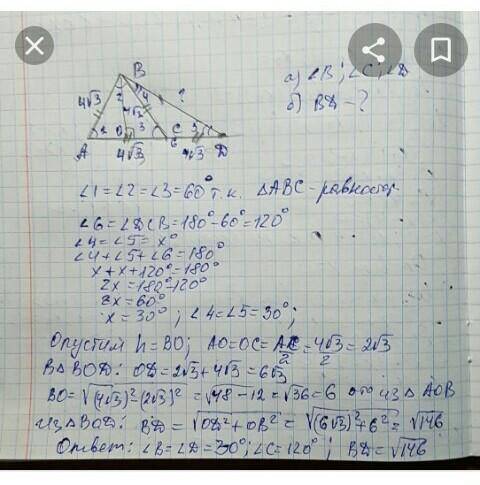 B
а) ∠B; ∠C; ∠D
4√3 2 4 ?
4√3
б) BD - ?
1 O 3 C 5
A 4√3 6 4√3 D
∠1=∠2=∠3=60° т.к. ΔABC-равностор
∠6=∠DCB=180°-60°=120°
∠4=∠5=x°
∠4+∠5+∠6=180°
x+x+120°=180°
2x=180°-120°
2x=60°
x=30°; ∠4=∠5=30°;
Опустим h=BO; AO=OC=AC/2=4√3/2=2√3
В ΔBOD: OD=2√3+4√3=6√3
BO=√(4√3)²-(2√3)²=√48-12=√36=6 это из ΔAOB
Из ΔBOD: BD=√OD²+OB²=√(6√3)²+6²=√146
Ответ: ∠B=∠D=30°; ∠C=120°; BD=√146